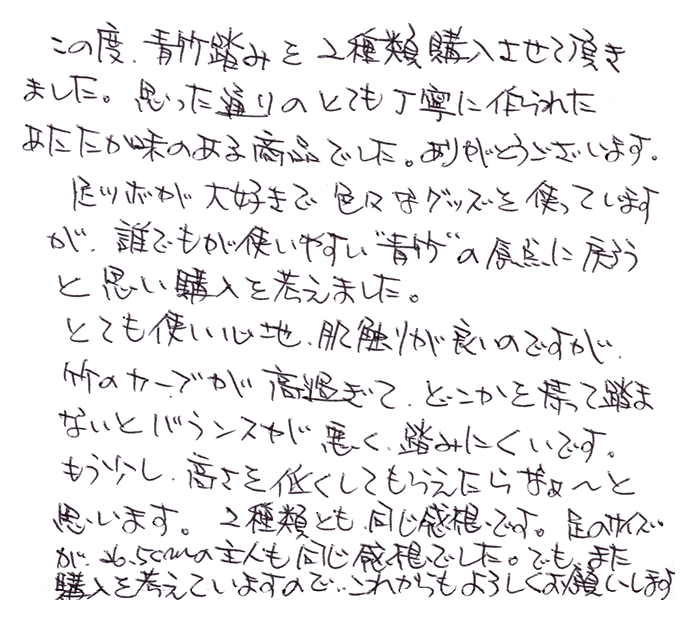 この度、青竹踏みを2種類購入させて頂き
ました。思った通りのとても丁寧に作られた
あたたか味のある商品でした。ありがとうございます。
足ツボが大好きで色々なグッズを使っています
が、誰でもが使いやすい"青竹"の原点に戻ろう
と思い購入を考えました。
とても使い心地、肌触りが良いのですが、
竹のカーブが高過ぎて、どこかを持って踏ま
ないとバランスが悪く、踏みにくいです。
もう少し、高さを低くしてもらえたらなぁ〜と
思います。2種類とも、同じ感想です。足のサイズ
が、26.5cmの主人も同じ感想でした。でも、また
購入を考えていますので、これからもよろしくお願いします